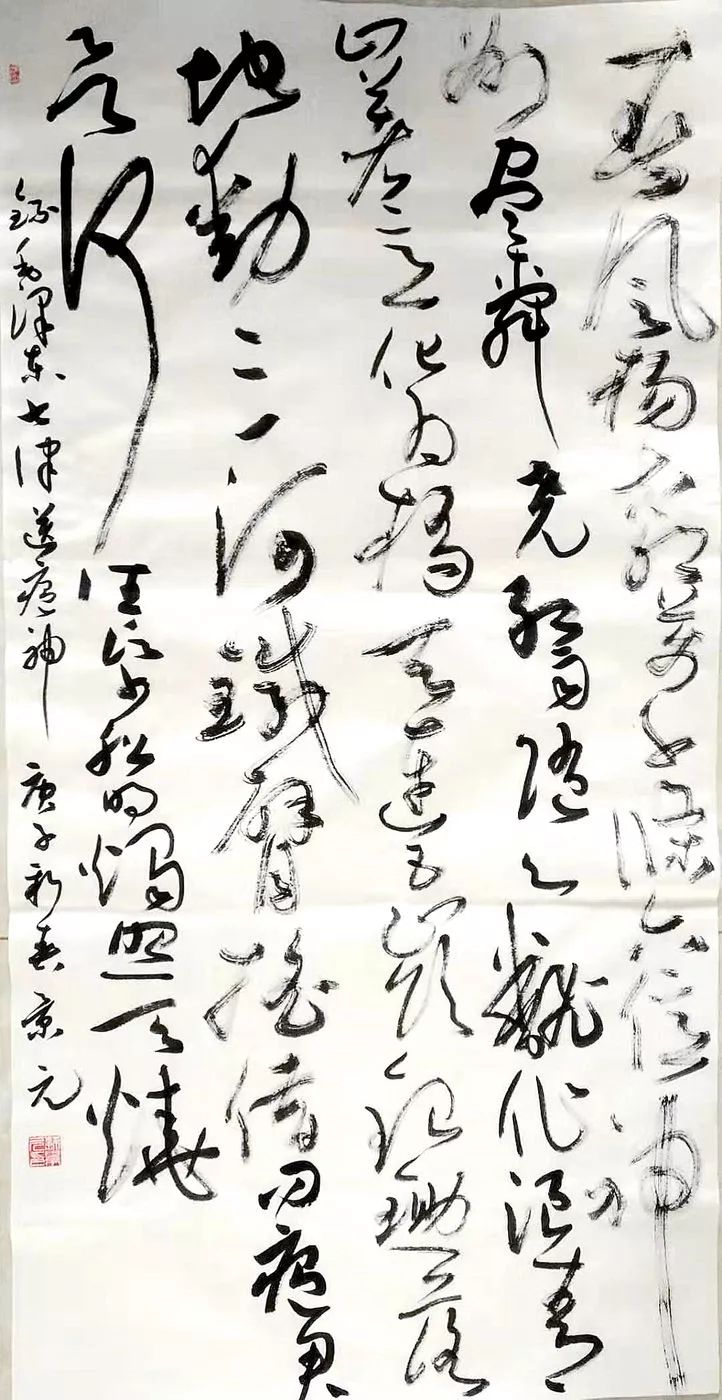 春风杨柳万千条六亿神
州尽舜尧红雨随心翻作浪青
山着意化为桥天连五岭银锄落
地动三河铁臂摇借问瘟君
欲何往纸船明烛照天烧
录毛泽东七律送瘟神 庚子新春